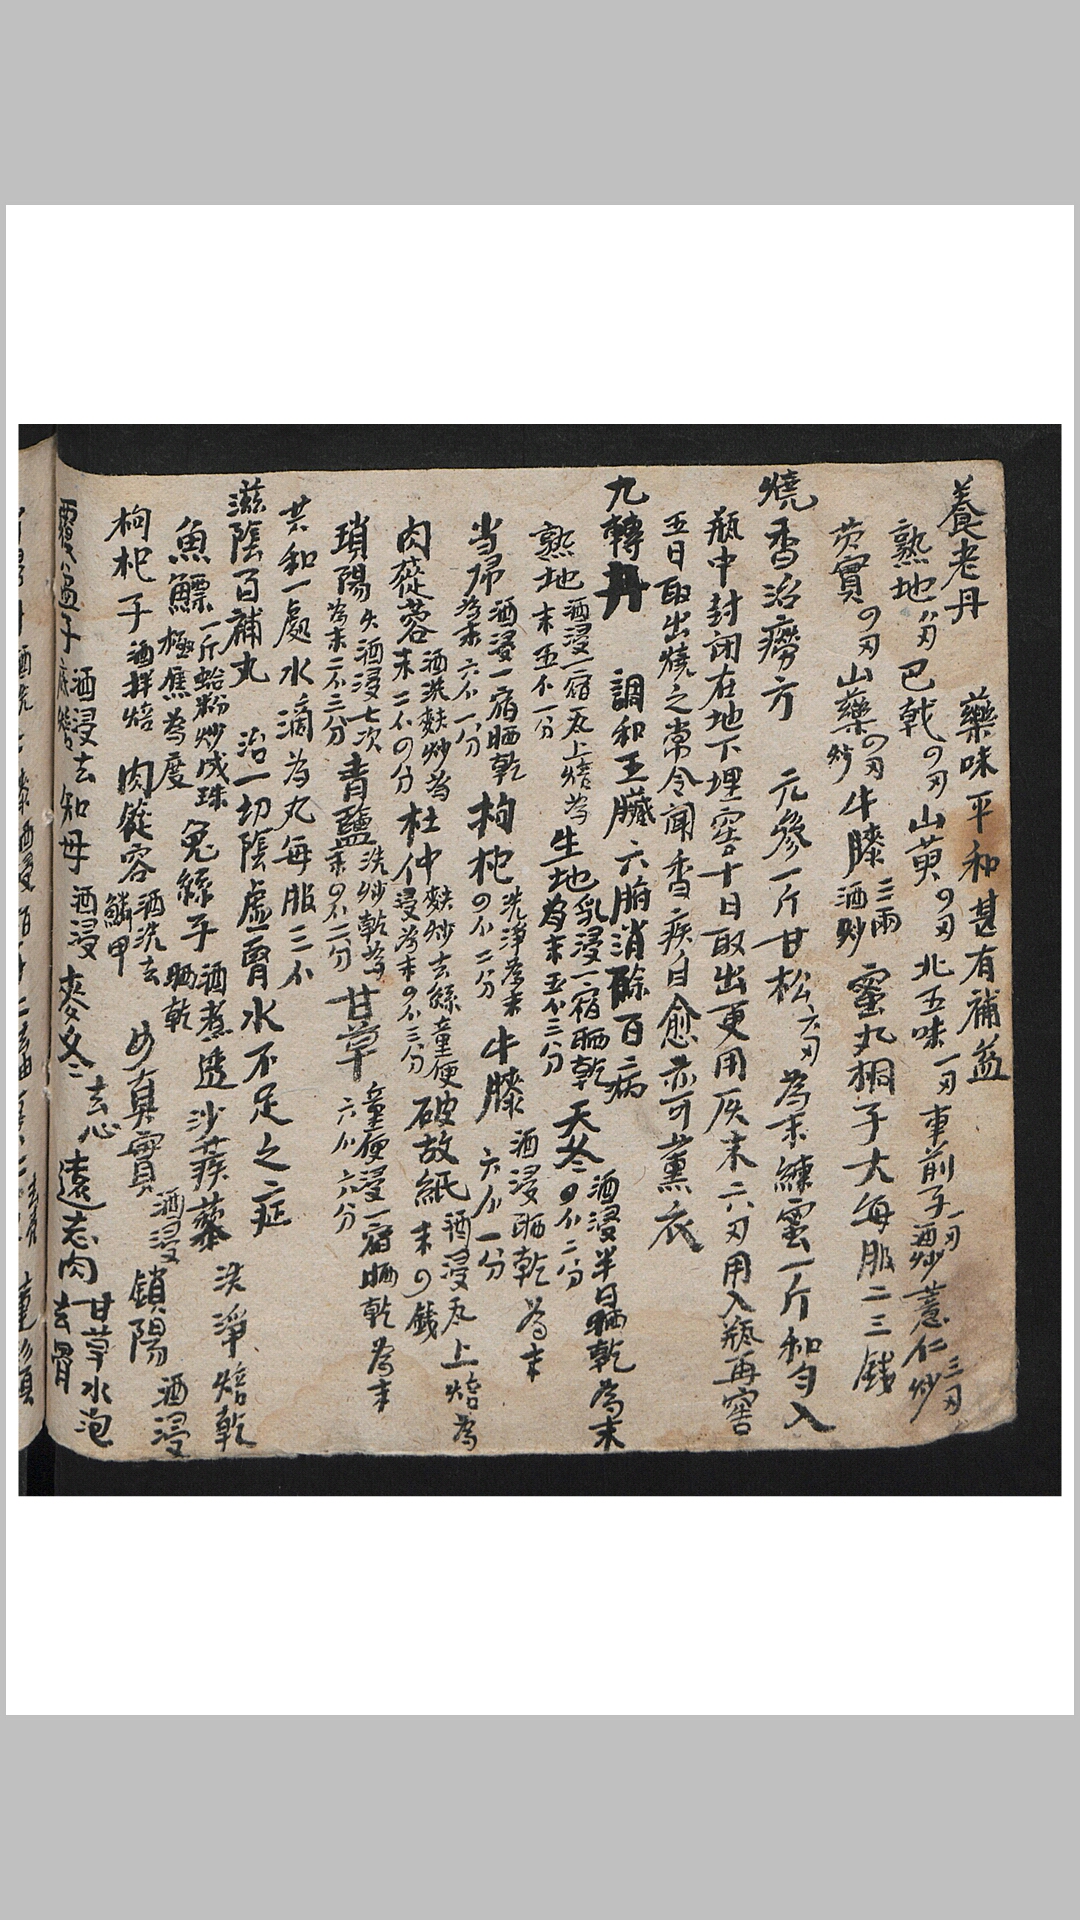 養老丹 藥味平和甚有補益
熟地 八刃 巴戟 四刃 山萸 四刃 北五味 一刃 車前子 一刃 酒炒 薏仁 三刃 炒
芡實 四刃 山藥 四刃 炒 牛膝 三兩 酒炒 蜜丸桐子大每服二三錢
燒香治癆方 元參一斤甘松 六刃 為末練蜜一斤和勻入
瓶中封閉在地下埋窖十日取出更用灰末六刃用入瓶再窖
五日取出燒之常令聞香疾自愈亦可薰衣
九轉丹 調和五臟六腑消除百病
熟地 酒浸一宿瓦上焙為末五不一分 生地 乳浸一宿晒乾為末五不三分 天冬 酒浸半日晒乾為末四不二分
当歸 酒浸一宿晒乾為末六不一分 枸杞 洗淨為末四不二分 牛膝 酒浸晒乾為末六不一分
肉蓯蓉 酒洗麩炒為末二不四分 杜仲 麩炒去絲童便浸為末四不三分 破故紙 酒浸瓦上焙為末四錢
瑣陽 火酒浸七次為末二不三分 青鹽 洗炒乾為末四不二分 甘草 童便浸一宿晒乾為末六不六分
共和一處水滴為丸每服三不
滋陰百補丸 治一切陰虛腎水不足之症
魚鰾 一斤蛤粉炒成珠極焦為度 兔絲子 酒煮透晒乾 沙蒺藜 洗淨焙乾
枸杞子 酒拌焙 肉蓯容 酒洗去鱗甲 女真實 酒浸 鎖陽 酒浸
覆盆子 酒浸去底 知母 酒浸 麥冬 去心 遠志肉 甘草水泡去骨